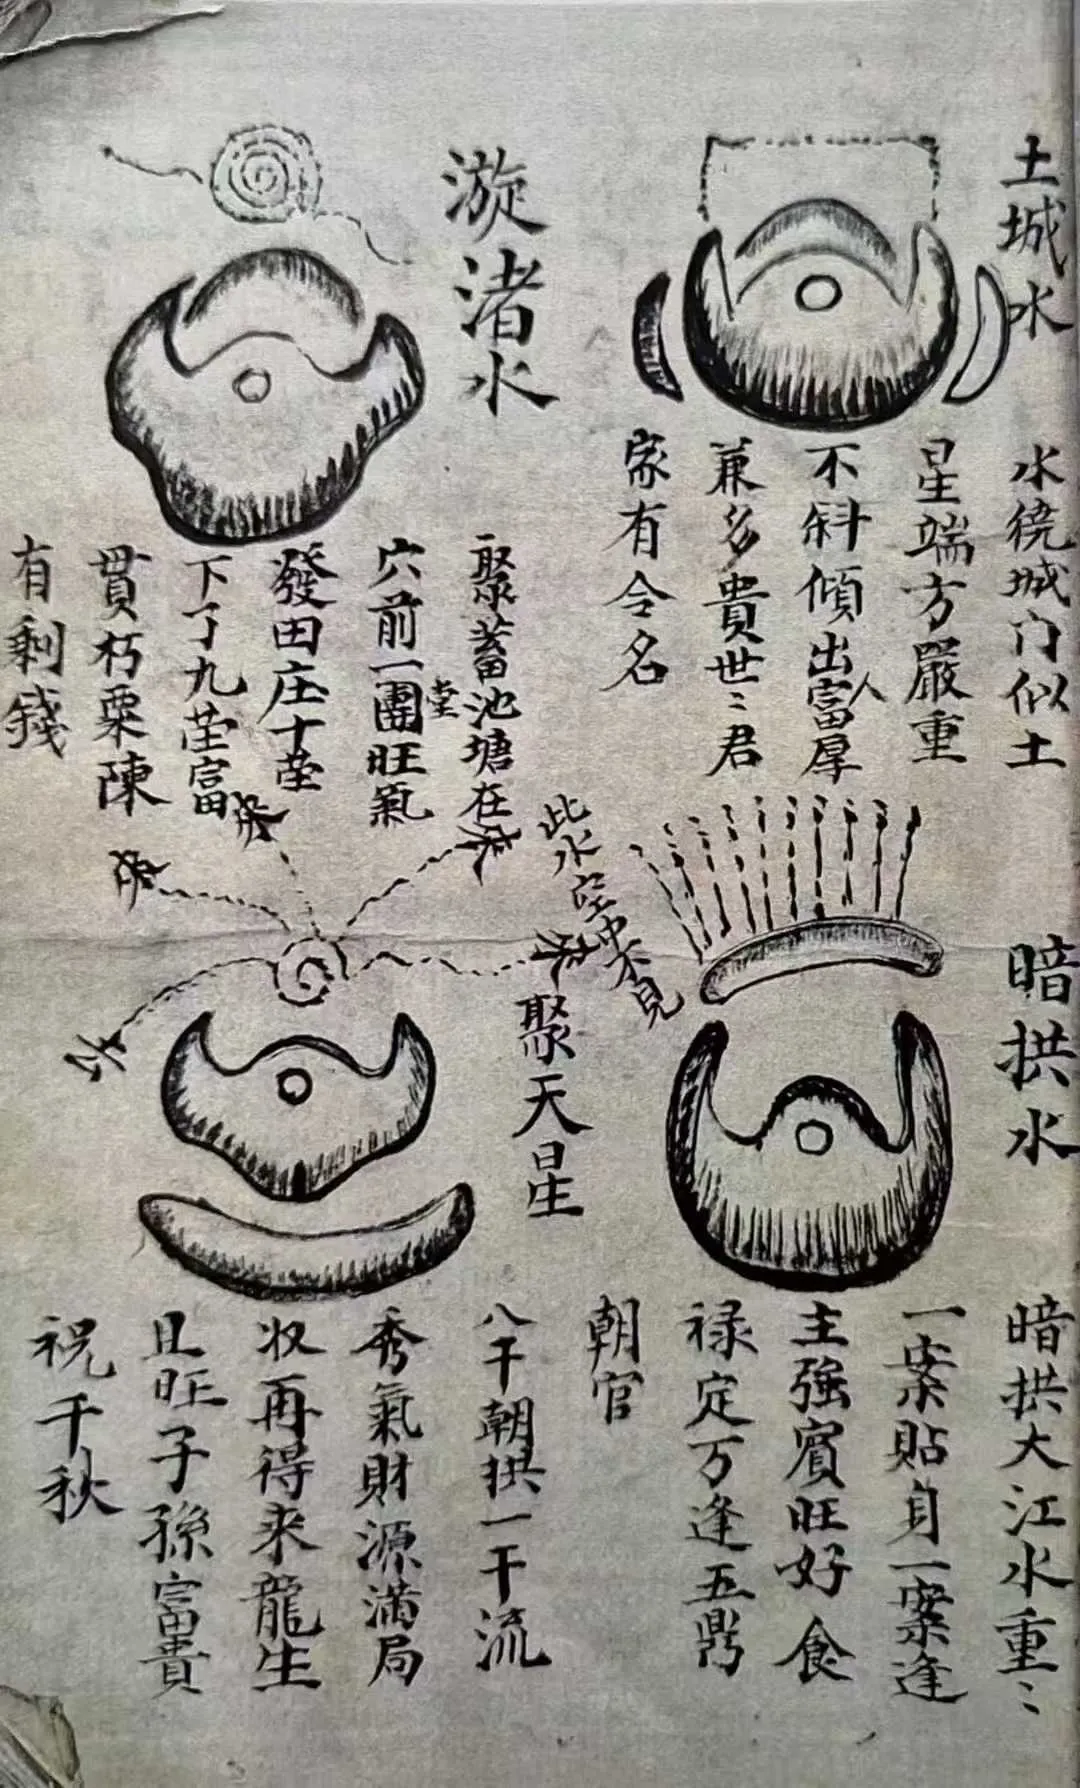 土城水
水绕城门似土
星端方嚴重
不斜傾出富人厚
兼多貴世〻君
家有令名
漩渚水
聚蓄池塘在
穴前一團旺氣
堂
發田庄十莹
下了九莹富
貫朽粟陳
有剩錢
暗拱水
此水空中不見
暗拱大江水重〻
一案贴身一案逢
主強賓旺好食
禄定万逢五鼎
朝官
聚天星
八干朝拱一干流
秀氣財源满局
收再得来龍生
且旺子孫富貴
祝千秋